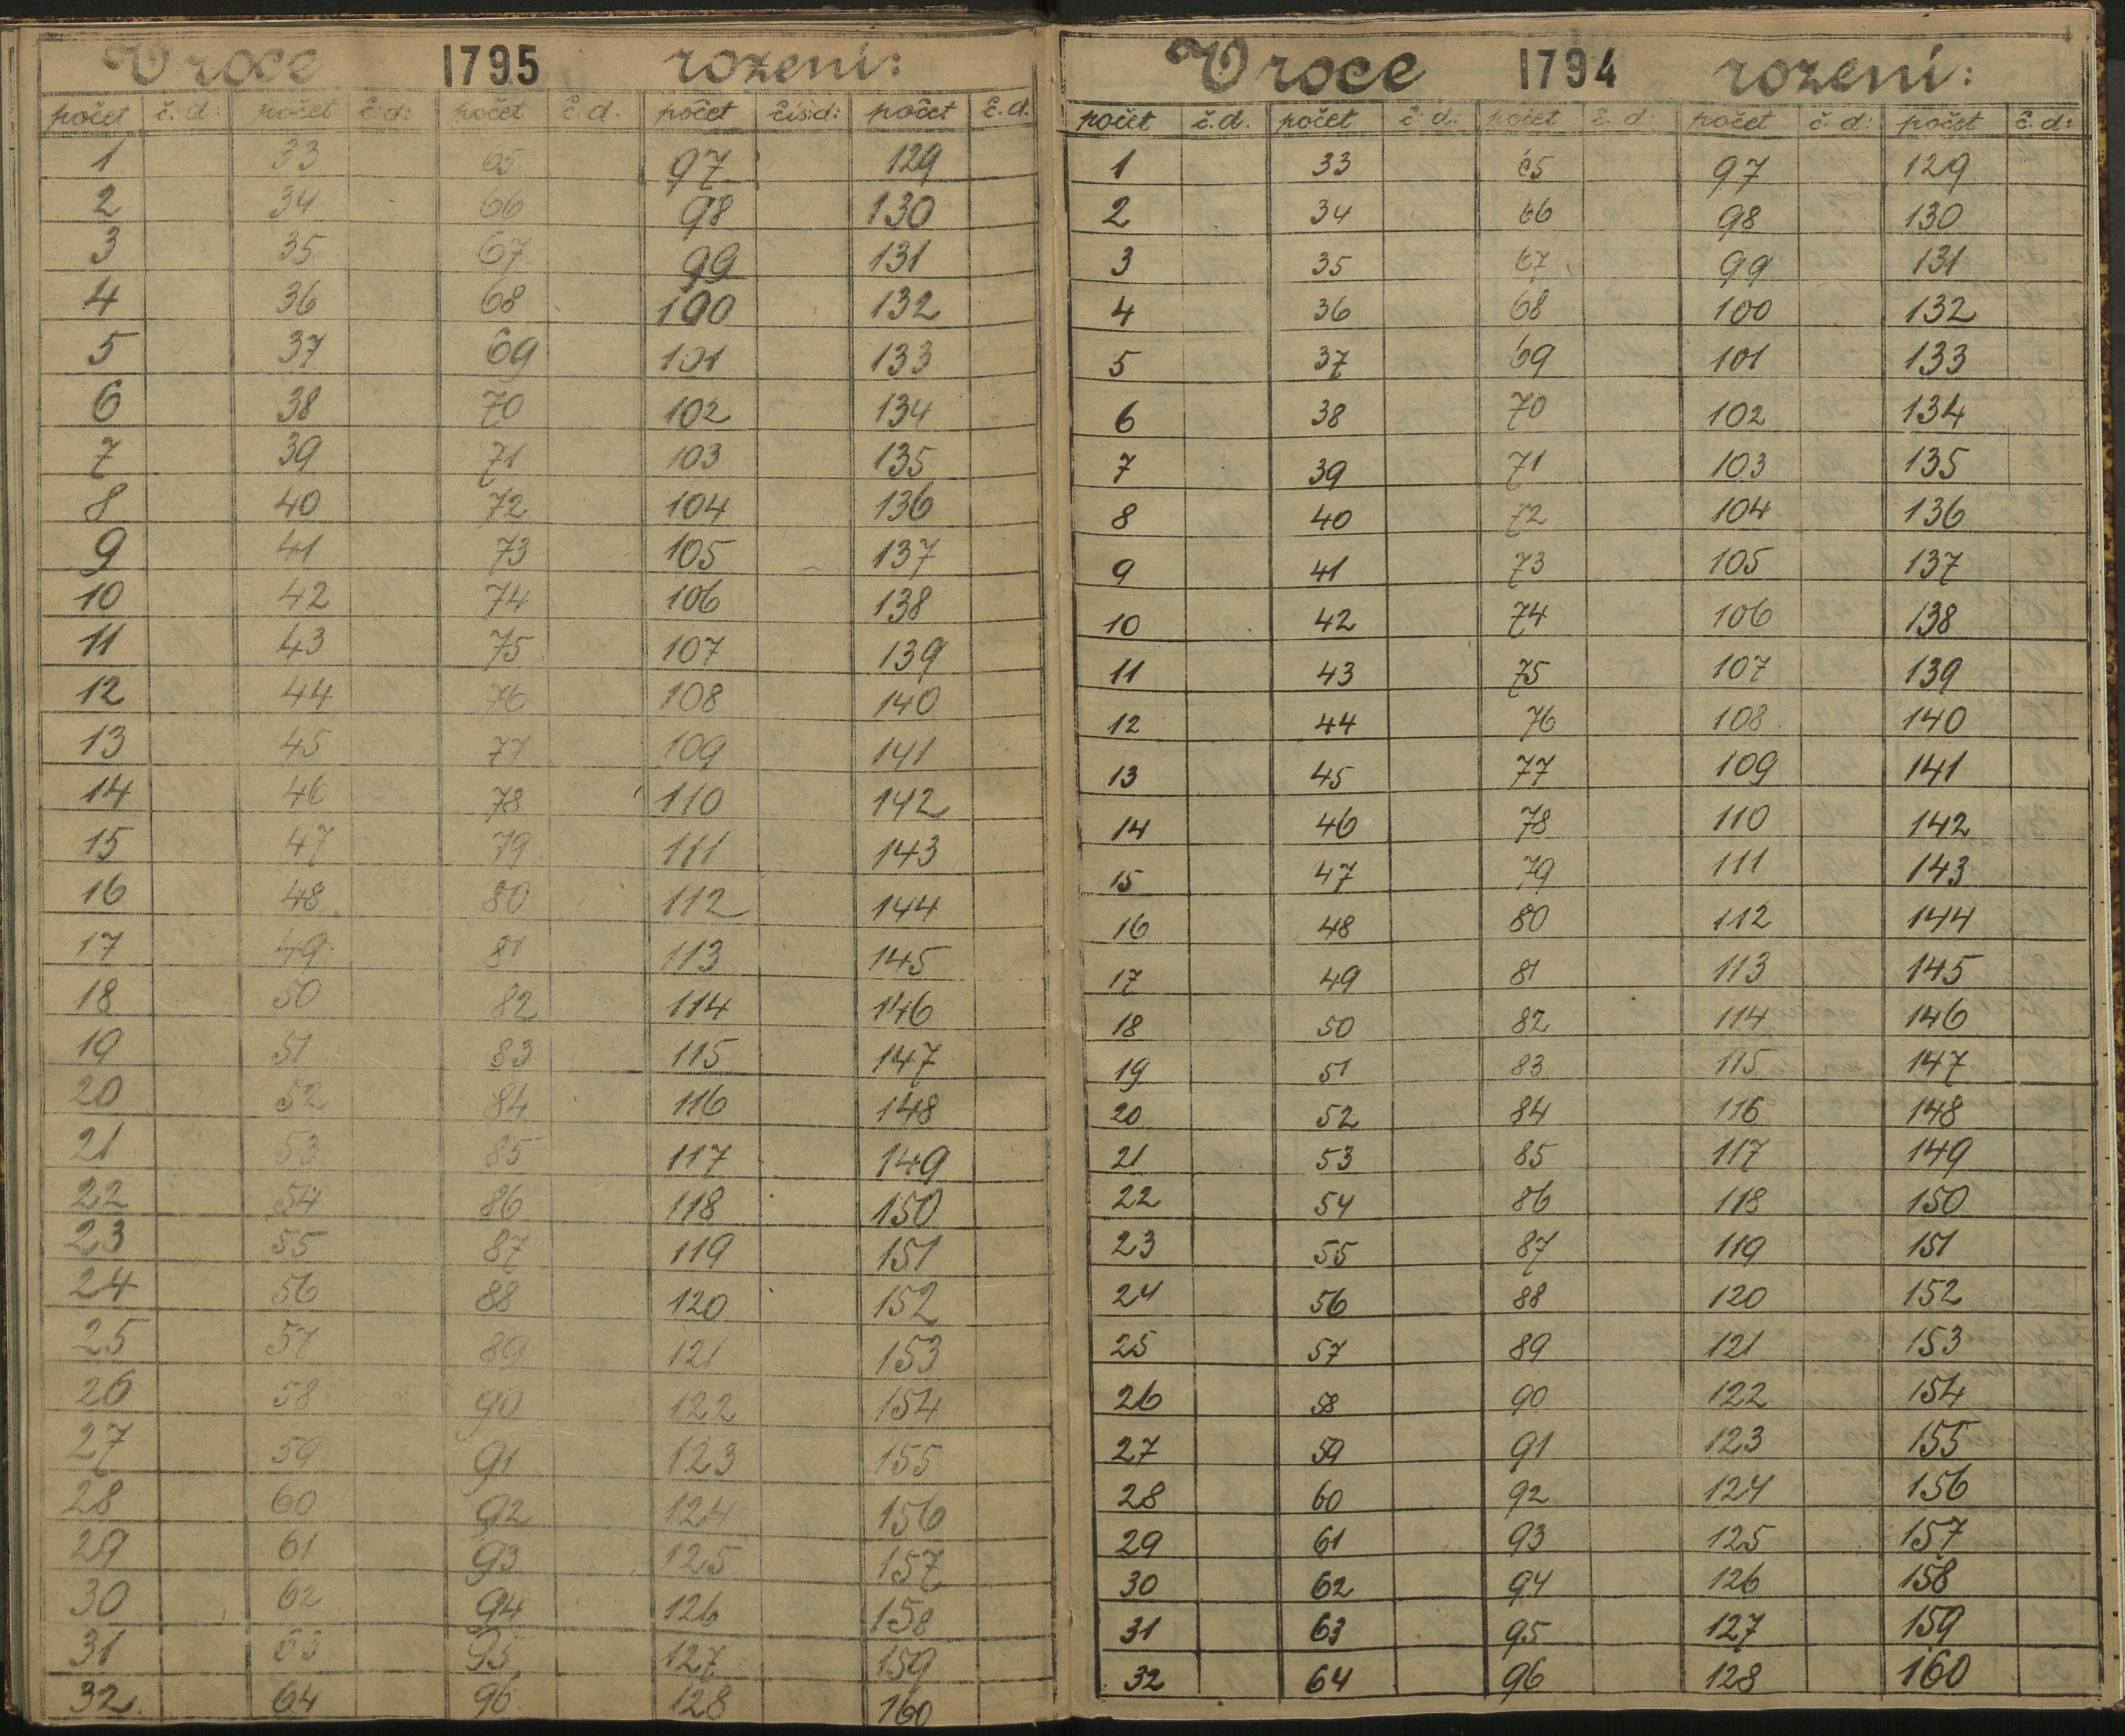 V roce 1795 rozeni:
počet č. d: počet č: d: počet č. d. počet čís: d: počet č. d.
1 33 65 97 129
2 34 66 98 130
3 35 67 99 131
4 36 68 100 132
5 37 69 101 133
6 38 70 102 134
7 39 71 103 135
8 40 72 104 136
9 41 73 105 137
10 42 74 106 138
11 43 75 107 139
12 44 76 108 140
13 45 77 109 141
14 46 78 110 142
15 47 79 111 143
16 48 80 112 144
17 49 81 113 145
18 50 82 114 146
19 51 83 115 147
20 52 84 116 148
21 53 85 117 149
22 54 86 118 150
23 55 87 119 151
24 56 88 120 152
25 57 89 121 153
26 58 90 122 154
27 59 91 123 155
28 60 92 124 156
29 61 93 125 157
30 62 94 126 158
31 63 95 127 159
32. 64 96 128 160
V roce 1794 rozeni:
počet č. d. počet č: d: počet č. d: počet č. d: počet č. d:
1 33 65 97 129
2 34 66 98 130
3 35 67 99 131
4 36 68 100 132
5 37 69 101 133
6 38 70 102 134
7 39 71 103 135
8 40 72 104 136
9 41 73 105 137
10 42 74 106 138
11 43 75 107 139
12 44 76 108 140
13 45 77 109 141
14 46 78 110 142
15 47 79 111 143
16 48 80 112 144
17 49 81 113 145
18 50 82 114 146
19 51 83 115 147
20 52 84 116 148
21 53 85 117 149
22 54 86 118 150
23 55 87 119 151
24 56 88 120 152
25 57 89 121 153
26 58 90 122 154
27 59 91 123 155
28 60 92 124 156
29 61 93 125 157
30 62 94 126 158
31 63 95 127 159
32 64 96 128 160